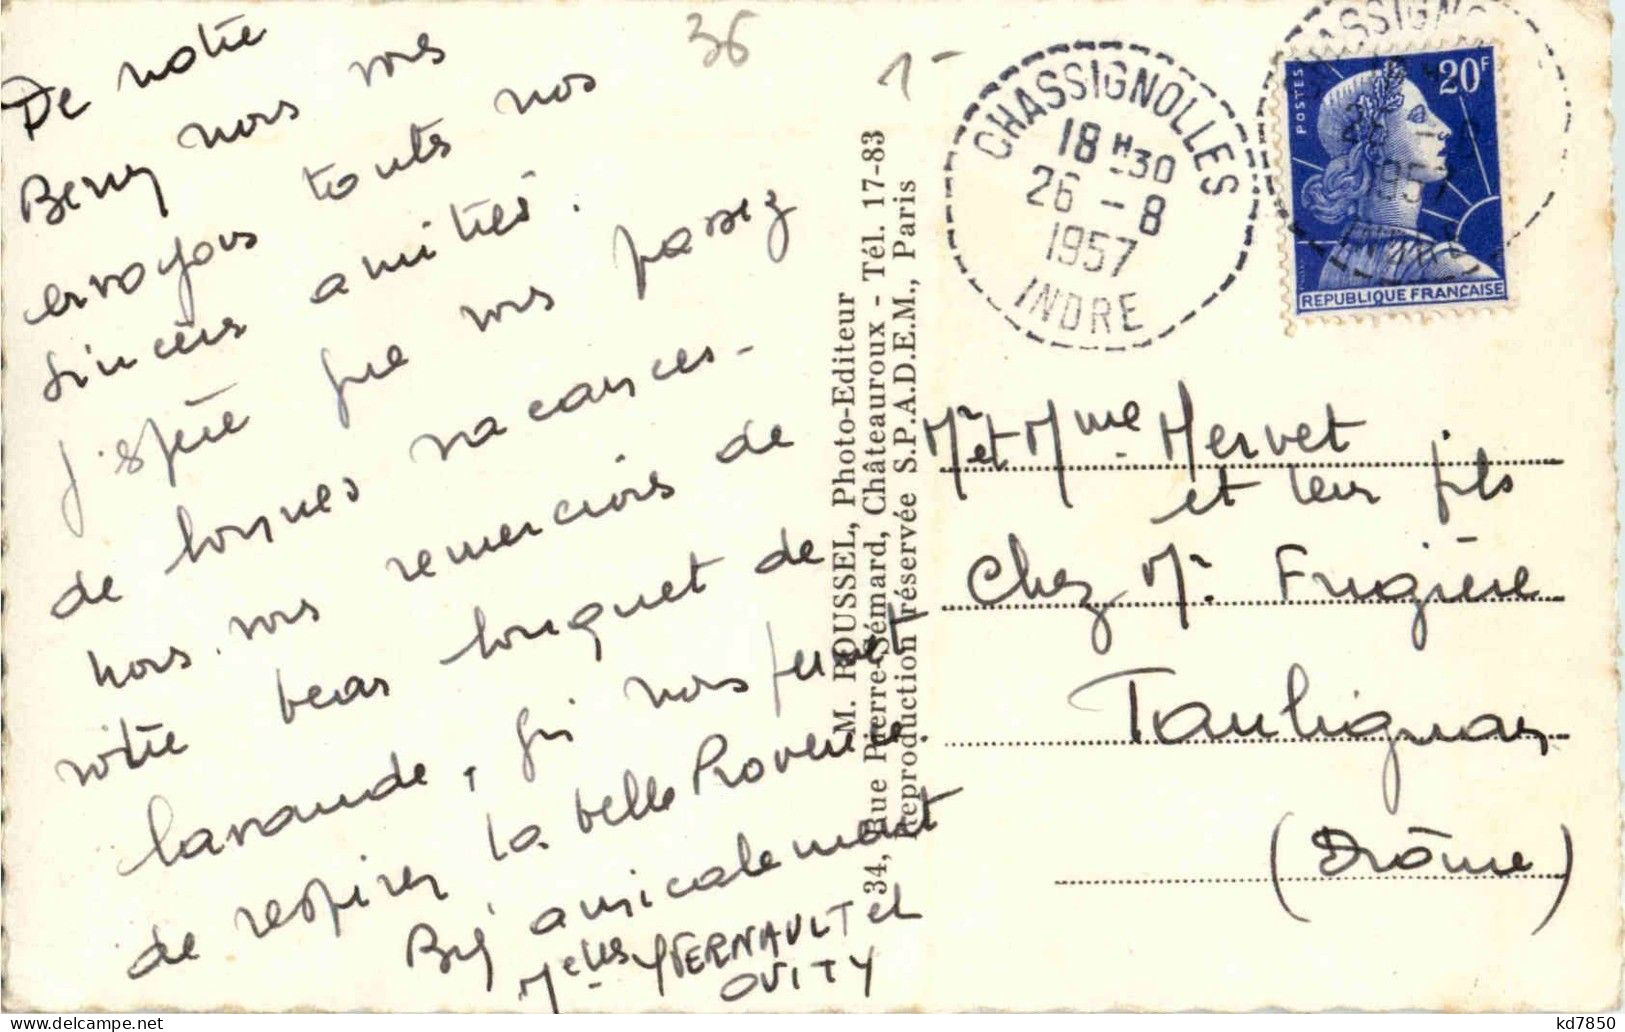 De notre
Berry nous vous
envoyons toutes nos
sincères amitiés.
J'espère que vous passez
de bonnes vacances -
nous vous remercions de
votre beau bouquet de
lavande, qui nous permet
de respirer la belle Provence.
Bien amicalement
Melles et
OVITY
36
1-
M. ROUSSEL, Photo-Editeur
34, Rue Pierre-Sémard, Châteauroux - Tél. 17-83
Reproduction réservée S.P.A.D.E.M., Paris
CHASSIGNOLLES
18 H 30
26 - 8
1957
INDRE
POSTES
20F
REPUBLIQUE FRANCAISE
Mr et Mme Hervet
et leur fils
Chez Mr. Frugière
Taulignan
(Drôme)
kd7850